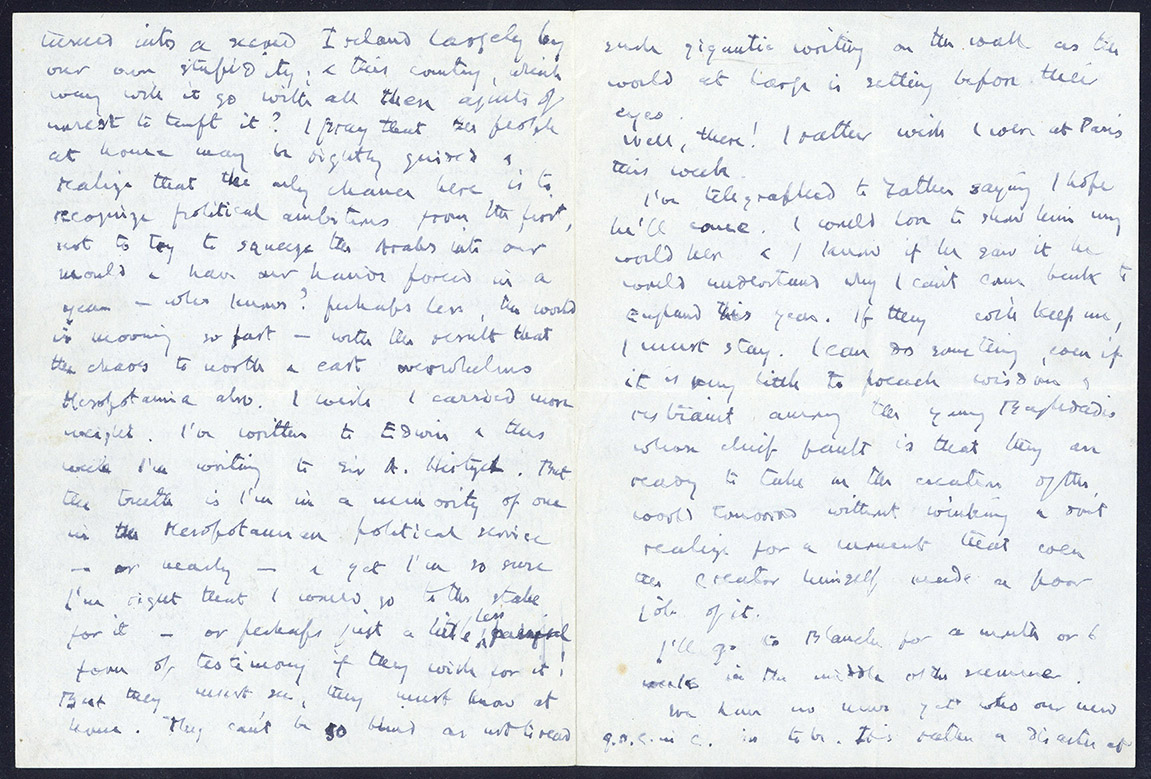 turned into a second Ireland largely by
our own stupidity; & this country, which
way will it go with all these agents of
unrest to tempt it? I pray that the people
at home may be rightly guided &
realize that the only chance here is to
recognize political ambitions from the first,
not to try to squeeze the Arabs into our
mould & have our hands forced in a
year - who knows? perhaps less, the world
is moving so fast - with the result that
the chaos to north & east overwhelms
Mesopotamia also. I wish I carried more
weight. I've written to Edwin & this
week I'm writing to Sir A. Hirtzel. But
the truth is I'm in a minority of one
in the Mesopotamian political service
- or nearly - & yet I'm so sure
I'm right that I would go to the stake
for it - or perhaps just a little less painful
form of testimony if they wish for it!
But they must see, they must know at
home. They can't be so blind as not to read
such gigantic writing on the wall as the
world at large is setting before their
eyes.
Well, there! I rather wish I were at Paris
this week.
I've telegraphed to Father saying I hope
he'll come. I would love to show him my
world here & I know if he saw it he
would understand why I can't come back to
England this year. If they will keep me,
I must stay. I can do something, even if
it is very little to preach wisdom &
restraint among the young Baghdadis
whose chief fault is that they are
ready to take on the creation of the
world tomorrow without winking & don't
realize for a moment that even
the creator himself made a poor
job of it.
I'll go to Blanche for a month or 6
weeks in the middle of the summer.
We have no news yet who our new
G.O.C. in C. is to be. It's rather a disaster at